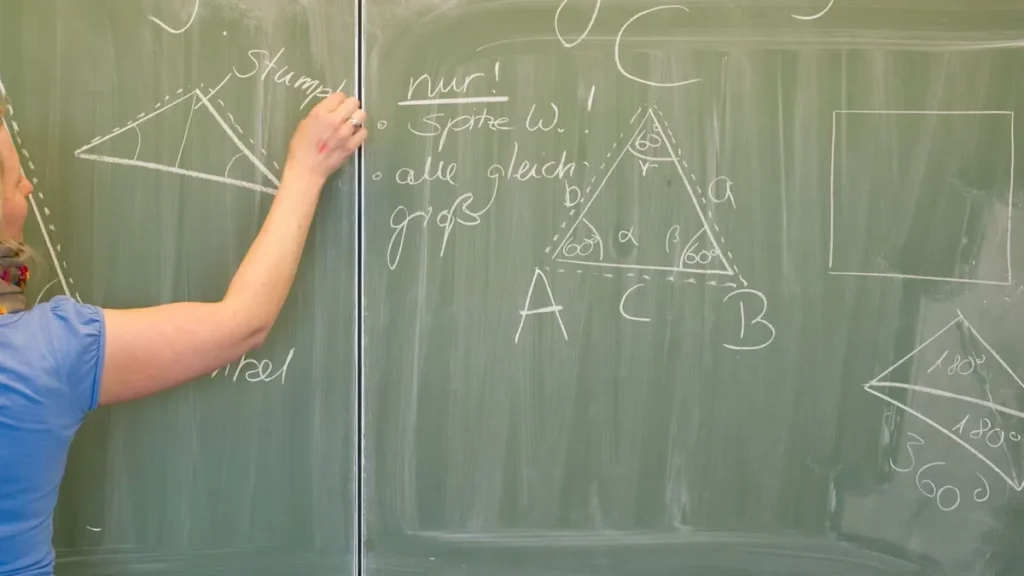 nur!
• spitze W. !
• alle gleich
groß
C
60°
γ
b
a
60°
α
β
60°
A
C
B
180°
180°
360°